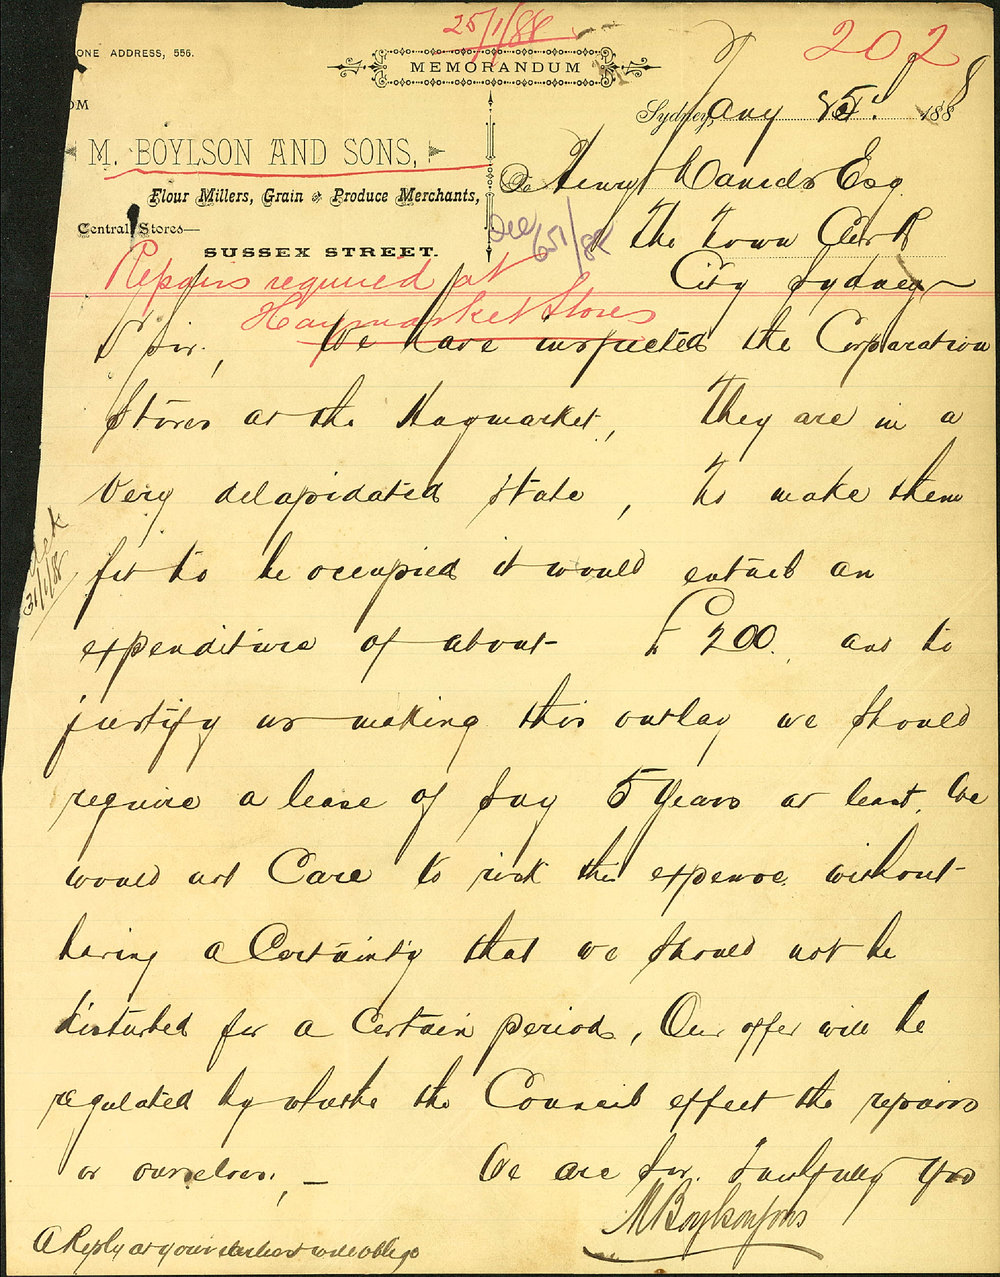 25/1/88
202
ONE ADDRESS, 556.
MEMORANDUM
OM
Sydney, 25th 1888
M. BOYLSON AND SONS,
Flour Millers, Grain & Produce Merchants,
To Henry Daniels Esq
Central Stores—
The Town Clerk
SUSSEX STREET.
651/88
City Sydney
Repairs required at
Haymarket Stores
D Sir, We have inspected the Corporation
Stores at the Haymarket, They are in a
very delapidated state, to make them
fit to be occupied it would entail an
expenditure of about £200. and to
justify us making this outlay we should
require a lease of say 5 years at least, We
would not Care to risk this expense without
having a Certainty that we should not be
disturbed for a Certain period, Our offer will be
regulated by whethe the Council effect the repairs
or ourselves, —
We are Sir Faithfully Yrs
M Boylson & Sons
A Reply at your earliest will oblige
31/1/88